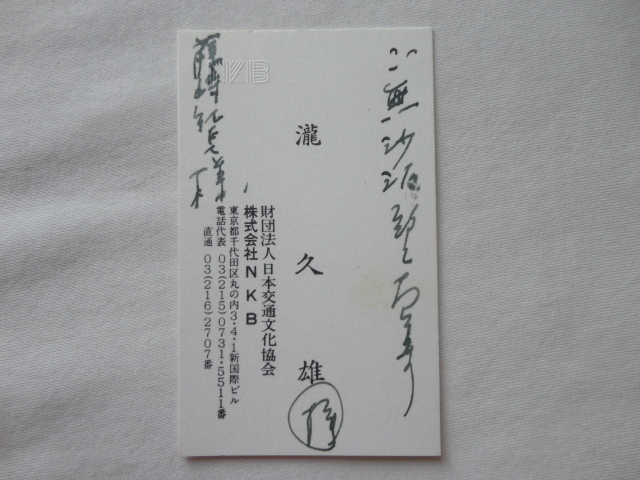 ご無沙汰
瀧久雄
財団法人日本交通文化協会
株式会社NKB
東京都千代田区丸の内3・4・1新国際ビル
電話代表 03(215)0731・5511番
直通 03(216)2707番
様
NKB